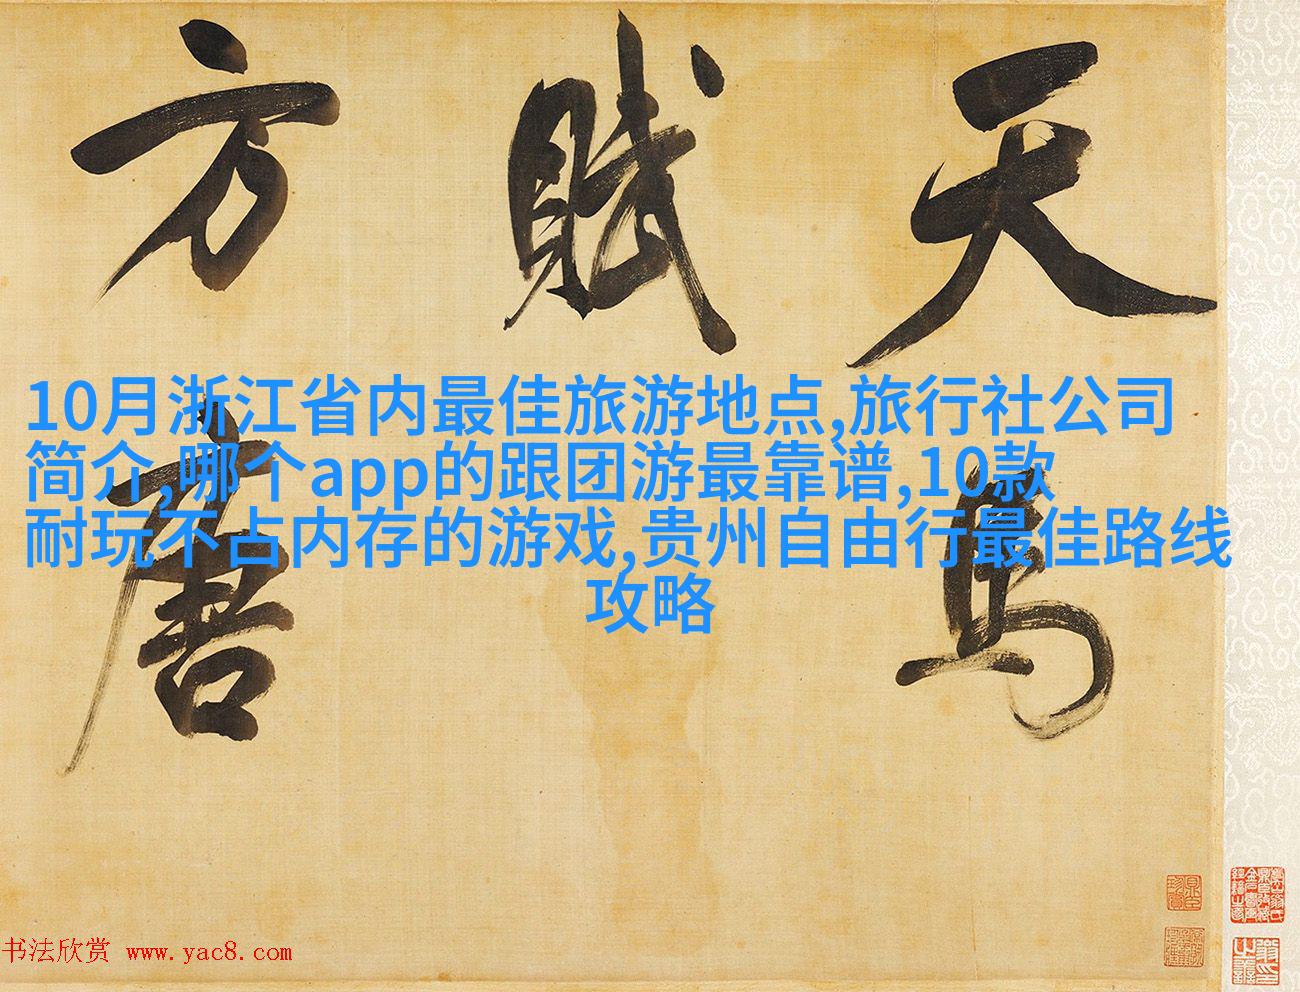 天馬
賦
方唐
10月浙江省内最佳旅游地点,旅行社公司
简介,哪个app的跟团游最靠谱,10款
耐玩不占内存的游戏,贵州自由行最佳路线
攻略
书法欣赏 www.yac8.com